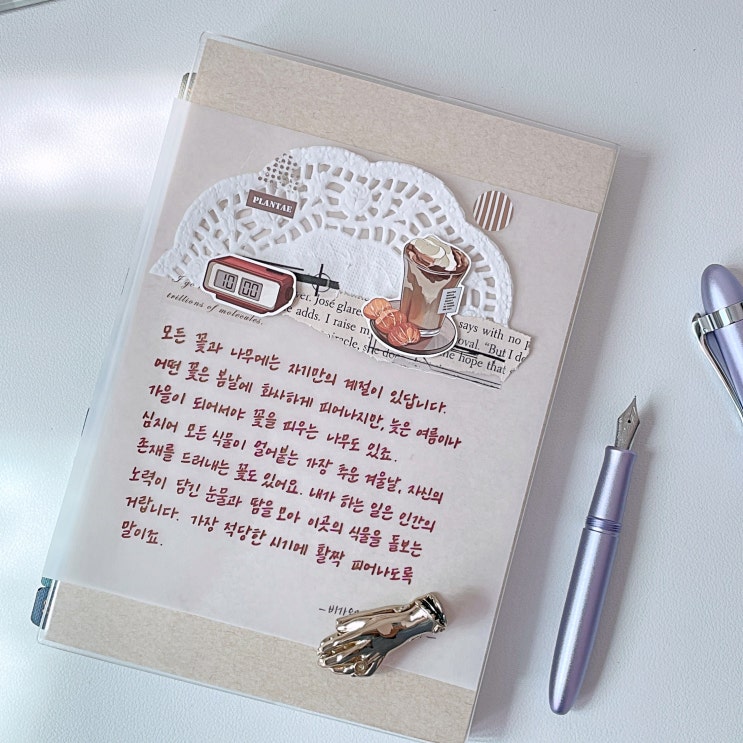 PLANTAE
10 00
trillions of molecules.
over. José glare
says with no
he adds. I raise my
oval. "But I do
miracle, she do
he hope that
모든 꽃과 나무에는 자기만의 계절이 있답니다.
어떤 꽃은 봄날에 화사하게 피어나지만, 늦은 여름이나
가을이 되어서야 꽃을 피우는 나무도 있죠.
심지어 모든 식물이 얼어붙는 가장 추운 겨울날, 자신의
존재를 드러내는 꽃도 있어요. 내가 하는 일은 인간의
노력이 담긴 눈물과 땀을 모아 이곳의 식물을 돌보는
거랍니다. 가장 적당한 시기에 활짝 피어나도록
말이죠.